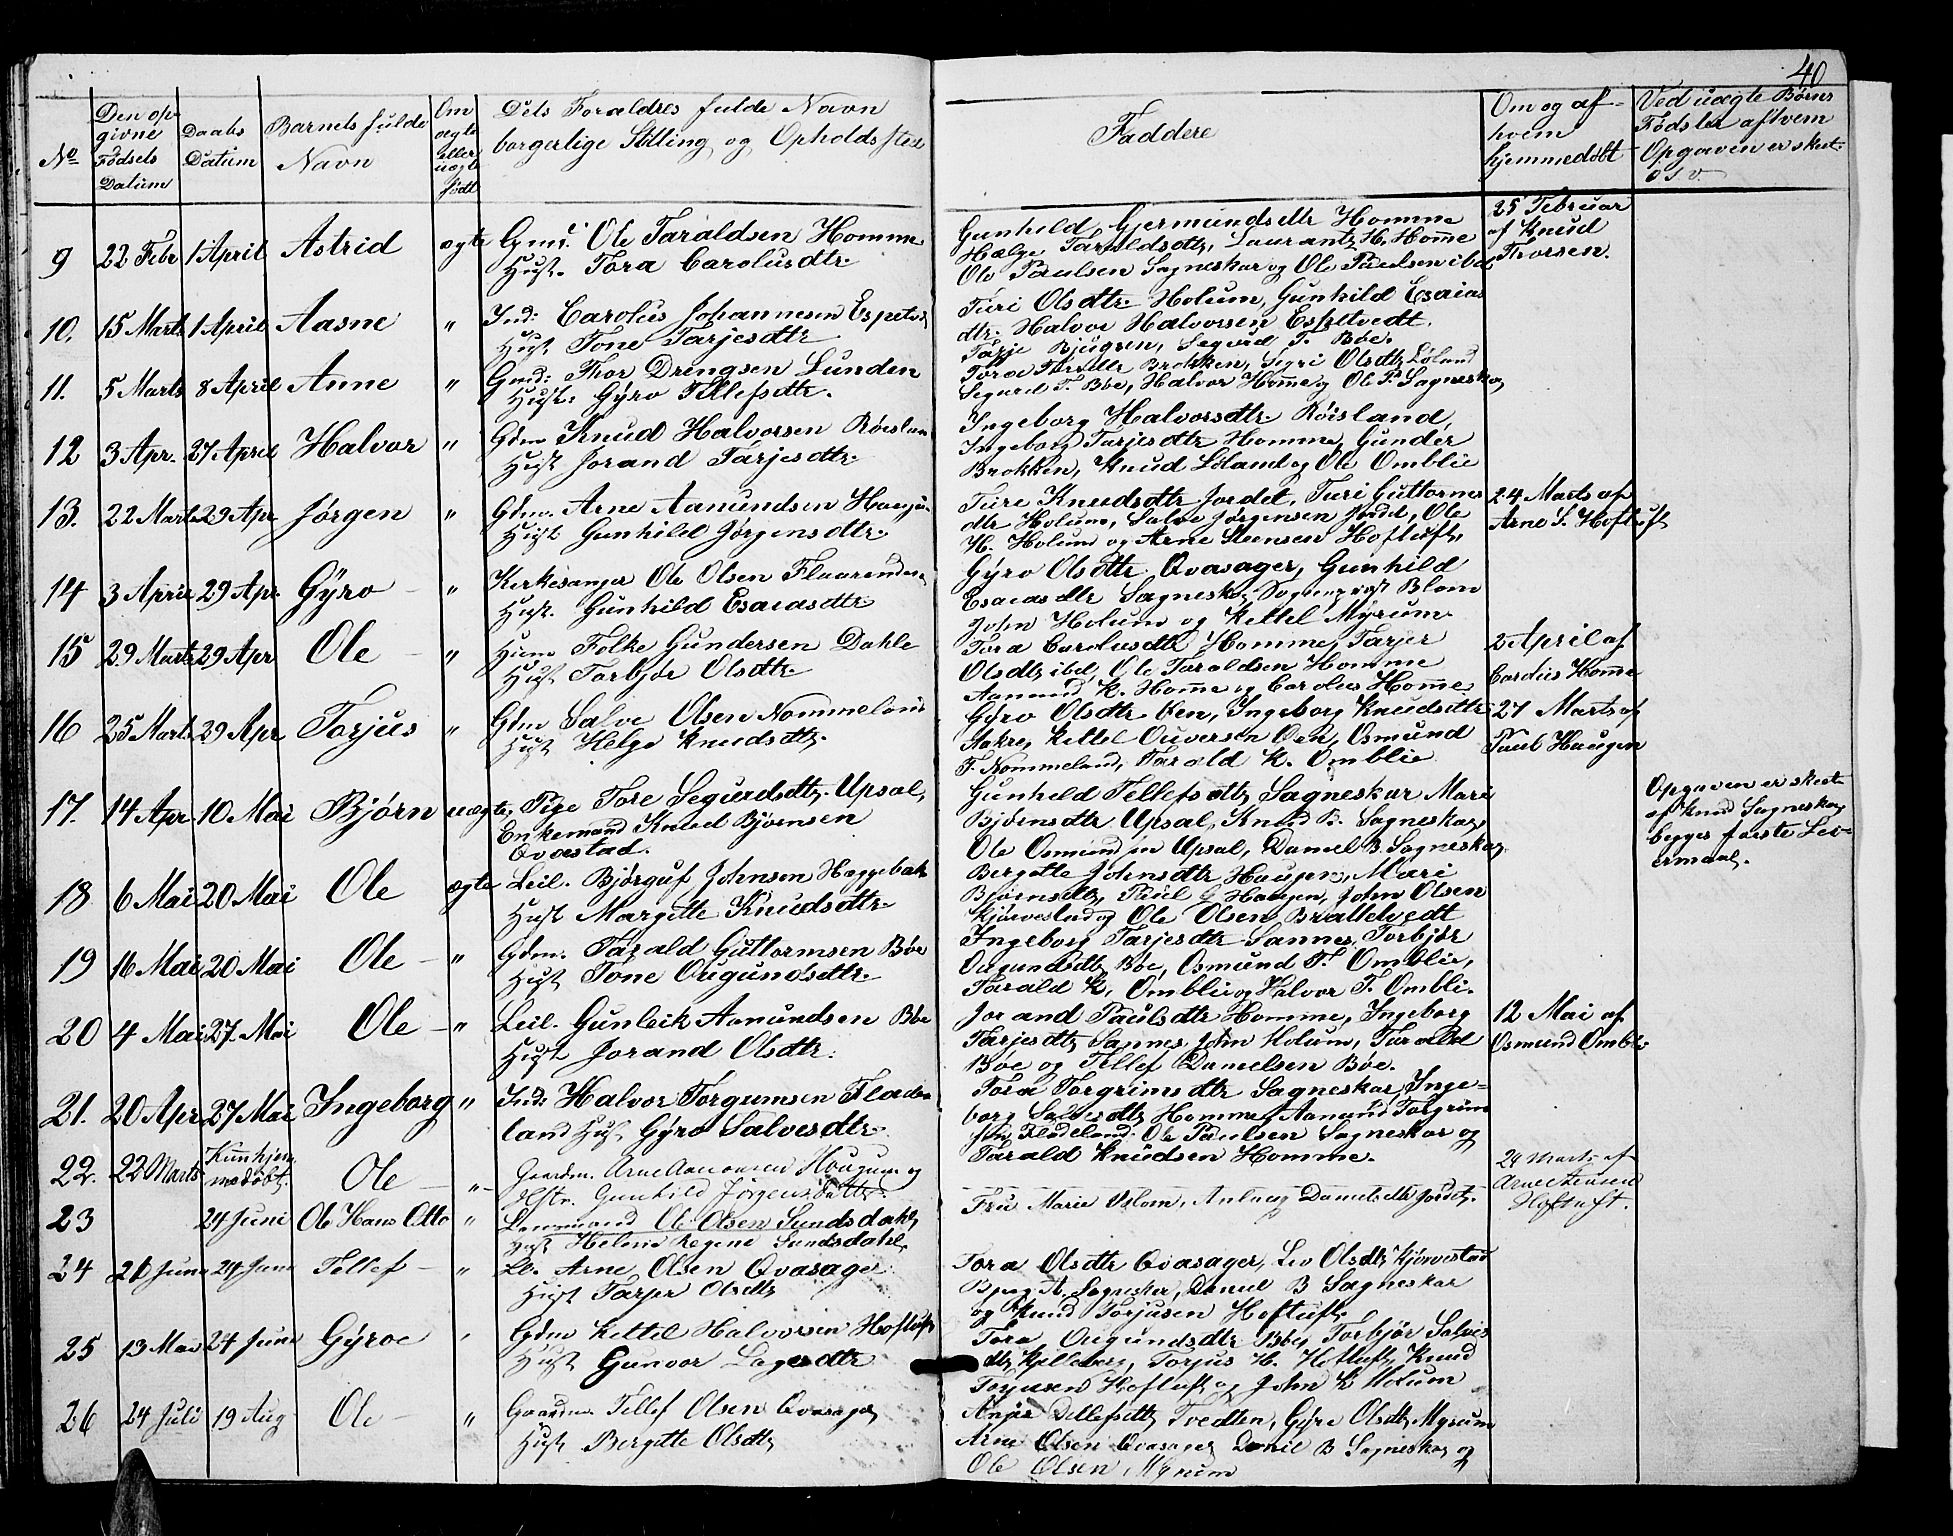 40
No
Den opgivne Fødsels Datum
Daabs Datum
Barnets fulde Navn
Om ægte eller uægte født
Dets Forældres fulde Navn borgerlige Stilling og Opholdssted
Faddere
Om og af hvem hjemmedøbt
Ved uægte Børns Fødsler af hvem Opgaven er skeet o s v.
9 22 Febr 1 April Astrid ægte Gmd. Ole Taraldsen Homme
Hust. Tora Carolusdtr.
Gunhild Gjermundsdtr Homme
Hælge Taraldsdtr, Laurantz H. Homme
Ole Paulsen Sagneskar og Ole Paulsen ibd
25 Februar
af Knud
Thorsen.
10. 15 Marts 1 April Aasne " Ind: Carolus Johannesen Espetv
Hust. Tone Tarjesdtr
Turi Olsdtr. Holum, Gunhild Esaias
dtr. Halvor Halvorsen Espetvedt.
Tarje Bjugsen, Segurd T. Bøe.
11. 5 Marts 8 April Anne " Gmd: Thor Drengsen Lunden
Hust: Gyro Tellefsdtr.
Brokken, Sigri Olsdtr Løland
Segurd T. Bøe, Halvor Homme og Ole P. Sagneskar
12 3 Apr. 27 April Halvor " Gdm Knud Halvorsen Røislan
Hust Jorand Tarjesdtr.
Ingeborg Halvorsdtr. Røisland,
Ingeborg Tarjesdtr Homme, Gunder
Brokken, Knud Løland og Ole Omblie
13. 22 Marts 29 Apr Jørgen " Gdm. Arne Aamundsen
Hust Gunhild Jørgensdtr.
Ture Knudsdtr Jordet, Turi Guttorms
dtr Holum, Salve Jørgensen Jordet, Ole
H. Holum og Arne Steensen Hoftuft,
24 Marts af
Arne S. Hoftuft
14 3 April 29 Apr Gyro " Kirkesanger Ole Olsen Flaarenden
Hust. Gunhild Esaiasdtr
Gyro Olsdtr. Qvasager, Gunhild
Esaiasdtr Sagneskar, Sogneprest Blom
John Holum og Kittel Myrum.
15 29 Marts 29 Apr Ole " Huum Folke Gundersen Dahle
Hust Torbjør Olsdtr.
Tora Carolusdtr Homme, Tarjer
Olsdtr ibd, Ole Taraldsen Homme
Aanund K. Homme og Carolus Homme
2 April af
Carolus Homme
16 25 Marts 29 Apr Torjus " Gdm Salve Olsen Nommeland
Hust Helge Knudsdtr.
Gyro Olsdtr Uen, Ingeborg Knudsdtr
Aakre, Kittel Ouversen Uen, Osmund
T. Nommeland, Tarald K. Omblie
27 Marts af
Paul Haugen
17. 14 Apr 10 Mai Bjørn uægte Pige Tore Segurdsdtr. Upsal,
Enkemand Knud Bjørnsen
Qvæstad.
Gunhild Tellefsdtr Sagneskar Mari
Bjørnsdtr Upsal, Knud B. Sagneskar,
Ole Osmundsen Upsal, Daniel B. Sagneskar
Opgaven er skeet
af Knud Sagneskar
begges første Lei-
ermaal.
18 6 Mai 20 Mai Ole ægte Leil. Bjørguf Johnsen Heggebak
Hust Margitte Knudsdtr.
Bergitte Johnsdtr Haugen, Mari
Bjørnsdtr, Paul G Haugen, John Olsen
Kjørvestad og Ole Olsen Brattetvedt
19 16 Mai 20 Mai Ole " Gdm. Tarald Guttormsen Bøe
Hust Tone Ougundsdtr.
Ingeborg Tarjesdtr Sannes, Torbjør
Ougundsdtr Bøe, Osmund T. Omblie,
Tarald K. Omblie og Halvor T. Omblie.
20 4 Mai 27 Mai Ole " Leil. Gunleik Aanundsen Bøe
Hust Jorand Olsdtr.
Jorand Paulsdtr Homme, Ingeborg
Tarjesdtr Sannes, John Holum, Tarald
Bøe og Tellef Danielsen Bøe.
12 Mai af
Osmund Omblie
21. 20 Apr 27 Mai Ingeborg " Ind: Halvor Torgrimsen Flade
land Hust Gyro Salvesdtr.
Tora Torgrimsdtr Sagneskar, Inge-
borg Salvesdtr Homme, Aanund Torgrim
sen Fladeland. Ole Paulsen Sagneskar og
Tarald Knudsen Homme.
22. 22 Marts Kun hjemmedøbt. Ole " Gaardm. Arne Aanonsen Haugum og
Hstr. Gunhild Jørgensdatter
24 Marts af
Arne Stensen
Hoftuft.
23 24 Juni Ole Hans Otto " Lensmand Ole Olsen Sundsdahl,
Hust Helene Regine Sundsdahl.
Fru Marie Uslom, Anlaug Danielsdtr Jordet.
24 21 Juni 24 Juni Tellef " Lb. Arne Olsen Qvasager.
Hust Tarjer Olsdtr
Tora Olsdtr Qvasager, Liv Olsdtr Kjørvestad
A. Sagneskar, Daniel B Sagneskar
og Knud Torjusen Hoftuft.
25 13 Mai 24 Juni Gyroe " Gdm Kittil Halvorsen Hoftuft
Hust Gunvor Lagesdtr
Tora Ougundsdtr Bøe, Torbjør Salves
dtr Kjilleberg, Torjus H. Hoftuft, Knud
Torjusen Hoftuft og John K Holum
26 24 Juli 19 Aug Ole " Gaardm. Tellef Olsen Qvasager
Hust Bergitte Olsdtr
Anjer Tellefsdtr Tvedten, Gyro Olsdtr Myrum
Arne Olsen Qvasager, Daniel B Sagneskar og
Ole Olsen Myrum